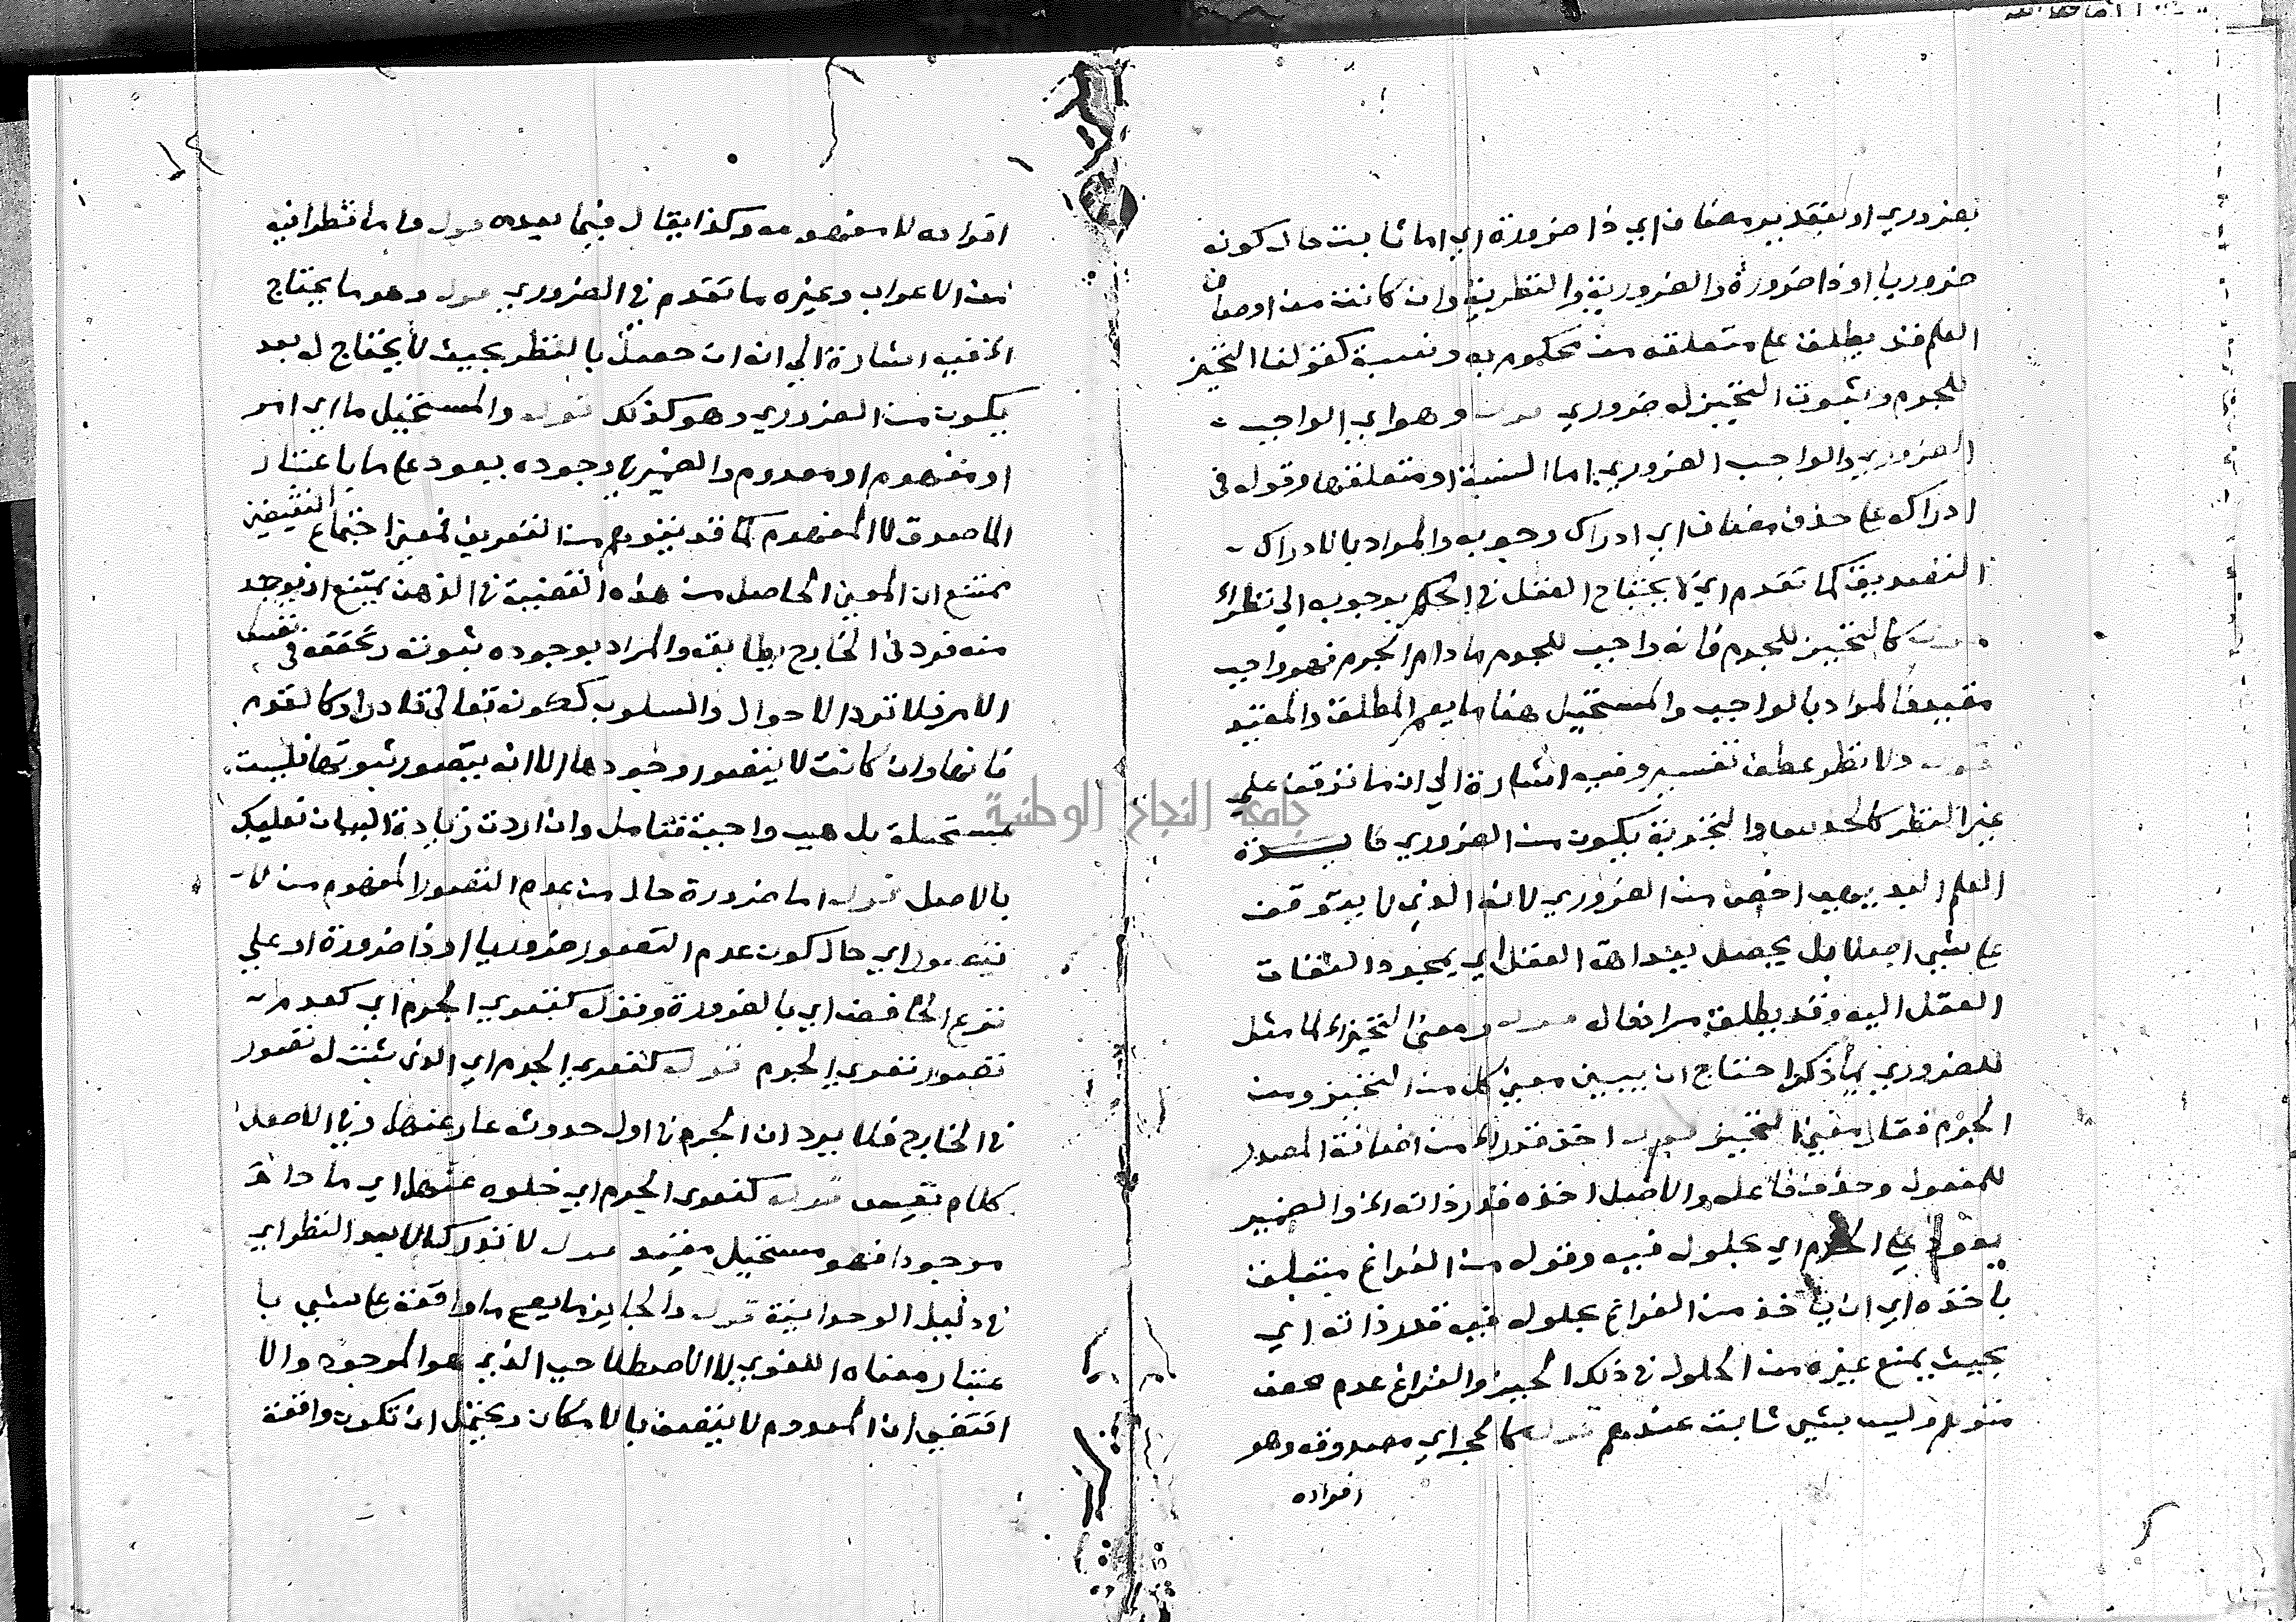 بضروري او بتقدير مضاف اي ذا ضرورة اي اما ثابت حال كونه
ضروريا او ذا ضرورة والضرورية والنظرية وان كانت من اوصاف
العلم قد يطلق على متعلقه من محكوم به ونسبة كقولنا التحيز
للجرم وثبوت التحيز له ضروري قوله وهو اي الواجب
الضروري والواجب الضروري اما النسبة او متعلقها وقوله في
ادراك على حذف مضاف اي ادراك وجوبه والمراد بالادراك
التصديق كما تقدم اي لا يحتاج العقل في الحكم بوجوبه الى نظر
قوله كالتحيز للجرم فانه واجب للجرم ما دام الجرم فهو واجب
مقيد فالمراد بالواجب والمستحيل هنا ما يعم المطلق والمقيد
قوله ولا نظر عطف تفسير وفيه اشارة الى ان ما توقف على
غير النظر كالحدس والتجربة يكون من الضروري فايدة
العلم البديهي اخص من الضروري لانه الذي لا يتوقف
على شي اصلا بل يحصل ببداهة العقل اي بمجرد التفات
العقل اليه وقد يطلق مرادفا له قوله ومعنى التحيز الخ لما مثل
للضروري بما ذكر احتاج ان يبين معنى كل من التحيز ومن
الجرم فقال معنى التحيز قوله اخذ قدر الخ من اضافة المصدر
للمفعول وحذف فاعله والاصل اخذه قدر ذاته الخ والضمير
يعود على الجرم اي بحلوله فيه وقوله من الفراغ متعلق
باخذه اي ان ياخذ من الفراغ بحلوله فيه قدر ذاته اي
بحيث يمنع غيره من الحلول في ذلك الحيز والفراغ عدم محض
متوهم وليس بشي ثابت عندهم قوله كالحجر اي مصدوقه وهو
افراده
١٤
افراده لا مفهومه وكذا يقال فيما بعده قوله واما نظرا فيه
من الاعراب وغيره ما تقدم في الضروري قوله وهو ما يحتاج
الخ فيه اشارة الى انه ان حصل بالنظر بحيث لا يحتاج له بعد
يكون من الضروري وهو كذلك قوله والمستحيل ما اي امر
او مفهوم او معدوم والضمير في وجوده يعود على ما باعتبار
الماصدق لا المفهوم كما قد يتوهم من التعريف فمعنى اجتماع النقيضين
ممتنع ان المعنى الحاصل من هذه القضية في الذهن يمتنع ان يوجد
منه فرد في الخارج يطابقه والمراد بوجوده ثبوته وتحققه في نفس
الامر فلا ترد الاحوال والسلوب ككونه تعالى قادرا وكالقدم
فانها وان كانت لا يتصور وجودها الا انه يتصور ثبوتها فليست
مستحيلة بل هي واجبة فتامل وان اردت زيادة البيان فعليك
بالاصل قوله اما ضرورة حال من عدم التصور المفهوم من لا
يتصور اي حال كون عدم التصور ضروريا او ذا ضرورة او على
نزع الخافض اي بالضرورة وقوله كتعري الجرم اي كعدم
تصور تعري الجرم قوله كتعري الجرم اي الذي ثبت له تصور
في الخارج فلا يرد ان الجرم في اول حدوثه عار عنهما وفي الاصل
كلام نفيس قوله كتعري الجرم اي خلوه عنهما اي ما دام
موجودا فهو مستحيل مقيد قوله لا تدرك الا بعد النظر اي
في دليل الوحدانية قوله والجايز ما يصح ما واقعة على شي با
عتبار معناه اللغوي لا الاصطلاحي الذي هو الموجود والا
اقتضى ان المعدوم لا يتصف بالامكان ويحتمل ان تكون واقعة
جامعة النجاح الوطنية